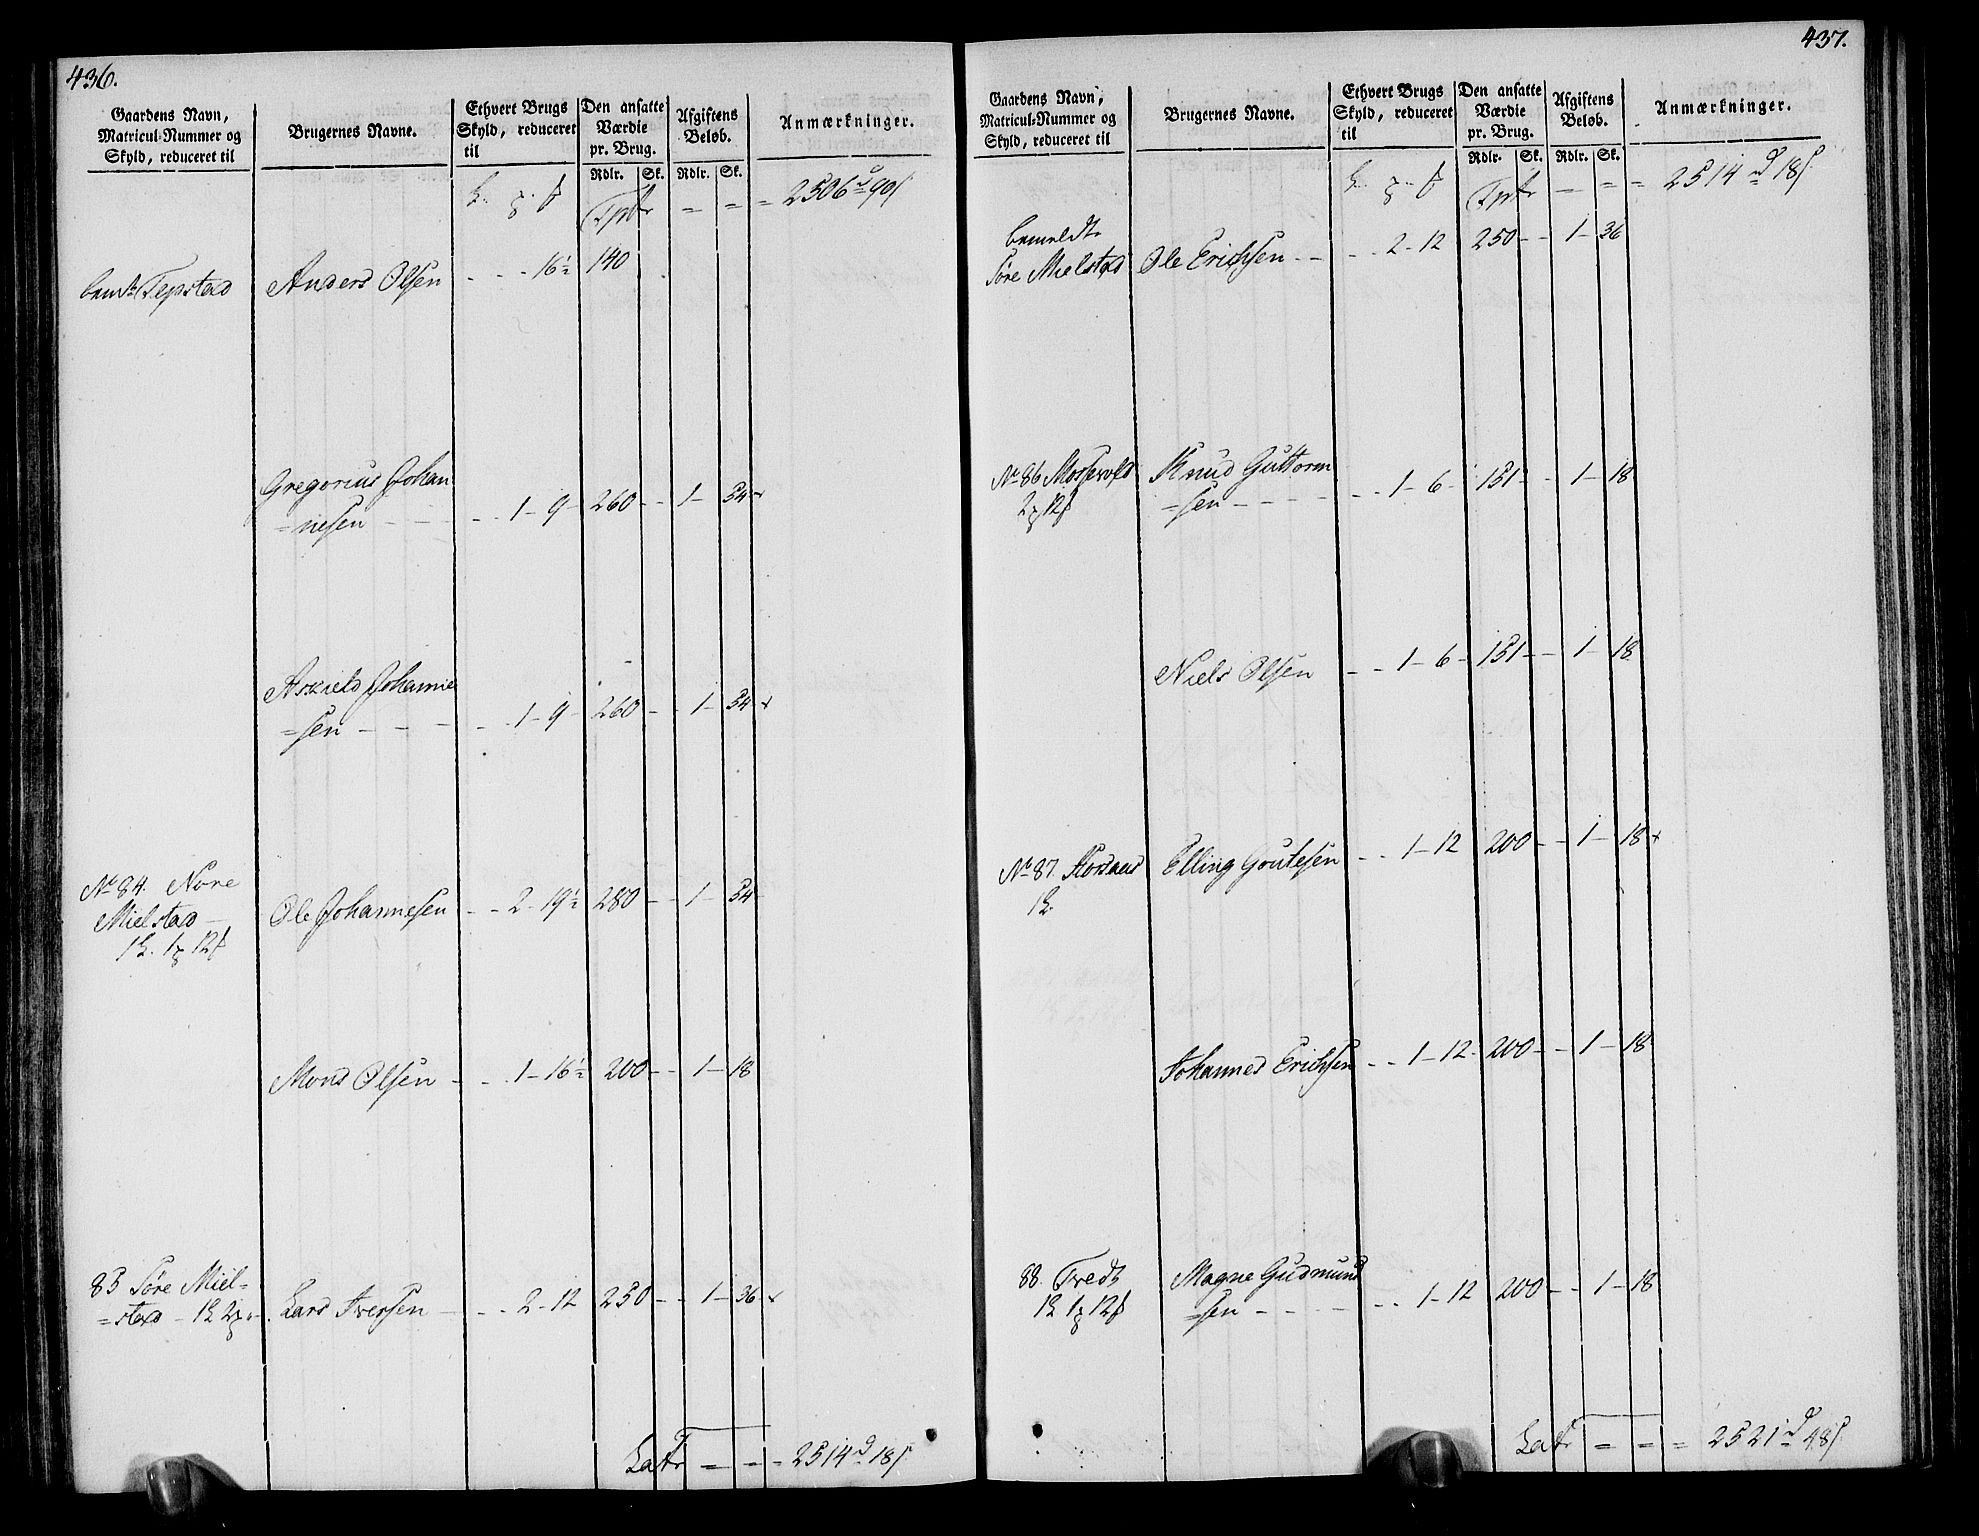 436.
Gaardens Navn, Matricul-Nummer og Skyld, reduceret til
Brugernes Navne.
Ethvert Brugs Skyld, reduceret til
Den ansatte Værdie pr. Brug.
Afgiftens Beløb.
Anmærkninger.
Rdlr. Sk. Rdlr. Sk.
Tptr = = = 2506 d 90 s
bemte Tepstad Anders Olsen - - - 16½ 140
Gregorius Johan
=nesen - - - - - 1 - 9 - 260 - - 1 - 54 +
Askield Johanne
=sen - - - - - 1 - 9 - 260 - - 1 - 54 +
No 84. Nore
Mielstad - Ole Johannesen - - 2 - 19½ 280 - - 1 - 54
Mons Olsen - - - 1 - 16½ 200 - - 1 - 18
85 Søre Miel=
=stad Lars Iversen - - - 2 - 12 250 - - 1 - 36 +
Latr = = = 2514 d 18 s
437.
Gaardens Navn, Matricul-Nummer og Skyld, reduceret til
Brugernes Navne.
Ethvert Brugs Skyld, reduceret til
Den ansatte Værdie pr. Brug.
Afgiftens Beløb.
Anmærkninger.
Rdlr. Sk. Rdlr. Sk.
Tptr = = = 2514 d 18 s
bemeldte
Søre Mielstad Ole Erichsen - - - - 2 - 12 250 - - 1 - 36
No 86 Knud Guttorm
=sen - - - - - - 1 - 6 - 151 - - 1 - 18
Niels Olsen - - 1 - 6 - 151 - - 1 - 18
No 87. Elling Goutesen - - 1 - 12 200 - - 1 - 18 +
Johannes Erichsen - - 1 - 12 - 200 - - 1 - 18
88. Tvedt Magne Gudmund
=sen - - - - - - 1 - 12 200 - - 1 - 18
Latr = = = 2521 d 48 s